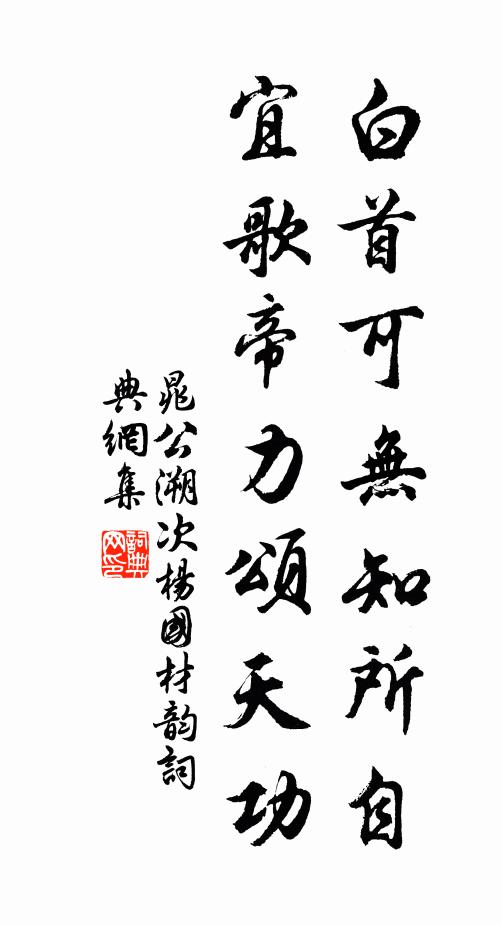 白首可無知所自
宜歌帝力頌天功
晁公溯次楊國材韵詞
典網集
詞典
网印